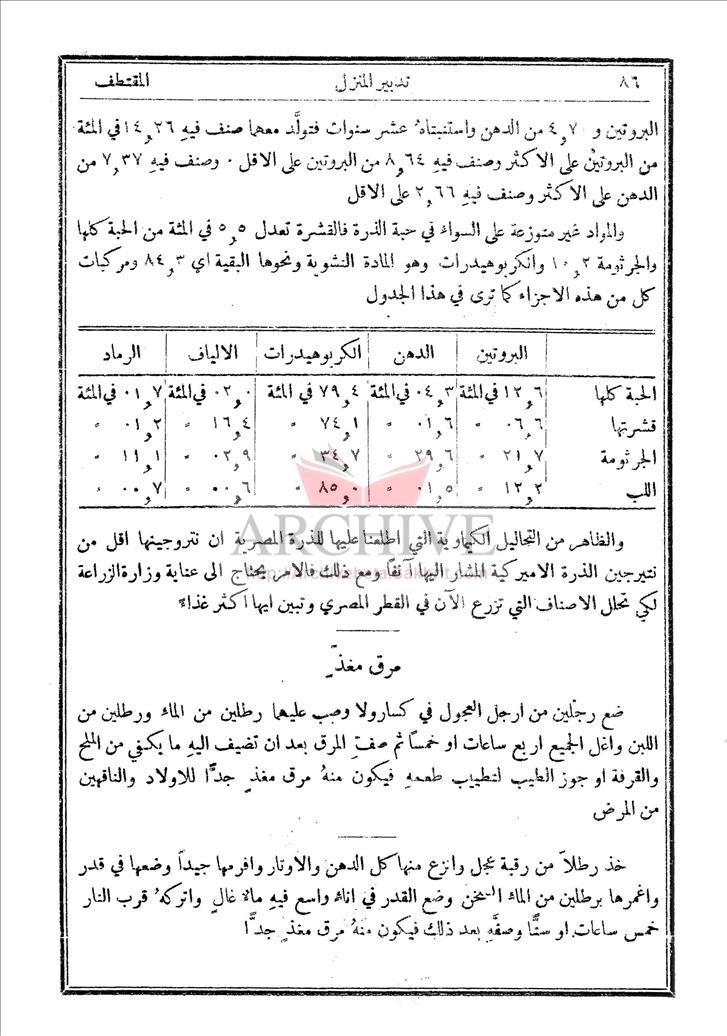 ٨٦ تدبير المنزل المقتطف
البروتين و ٤٫٧٠ من الدهن واستنبتاهُ عشر سنوات فتولَّد معهما صنف فيهِ ١٤٫٢٦ في المئة
من البروتين على الاكثر وصنف فيهِ ٨٫٦٤ من البروتين على الاقل ٠ وصنف فيهِ ٧٫٣٧ من
الدهن على الاكثر وصنف فيهِ ٢٫٦٦ على الاقل
والمواد غير متوزعة على السواء في حبة الذرة فالقشرة تعدل ٥٫٥ في المئة من الحبة كلها
والجرثومة ١٠٫٢ والكربوهيدرات وهو المادة النشوية ونحوها البقية اي ٨٤٫٣ ومركبات
كل من هذه الاجزاء كما ترى في هذا الجدول
البروتين الدهن الكربوهيدرات الالياف الرماد
الحبة كلها ١٢٫٦ في المئة ٠٤٫٣ في المئة ٧٩٫٤ في المئة ٠٢٫٠ في المئة ٠١٫٧ في المئة
قشرتها ٠٦٫٦ " ٠١٫٦ " ٧٤٫١ " ١٦٫٤ " ٠١٫٢ "
الجرثومة ٢١٫٧ " ٢٩٫٦ " ٣٤٫٧ " ٠٢٫٩ " ١١٫١ "
اللب ١٢٫٢ " ٠١٫٥ " ٨٥٫٠ " ٠٠٫٦ " ٠٠٫٧ "
ARCHIVE
والظاهر من التحاليل الكيماوية التي اطلعنا عليها للذرة المصرية ان نتروجينها اقل من
نتيرجين الذرة الاميركية المشار اليها آنفًا ومع ذلك فالامر يحتاج الى عناية وزارة الزراعة
لكي تحلل الاصناف التي تزرع الآن في القطر المصري وتبين ايها اكثر غذاءً
مرق مغذٍّ
ضع رجلين من ارجل العجول في كسارولا وصب عليهما رطلين من الماء ورطلين من
اللبن واغل الجميع اربع ساعات او خمسًا ثم صفِّ المرق بعد ان تضيف اليهِ ما يكفي من الملح
والقرفة او جوز الطيب لتطييب طعمهِ فيكون منهُ مرق مغذٍ جدًّا للاولاد والناقهين
من المرض
خذ رطلاً من رقبة عجل وانزع منها كل الدهن والاوتار وافرمها جيداً وضعها في قدر
واغمرها برطلين من الماء السخن وضع القدر في اناء واسع فيهِ ماء غالٍ واتركهُ قرب النار
خمس ساعات او ستًّا وصفِّهِ بعد ذلك فيكون منهُ مرق مغذٍ جدًّا